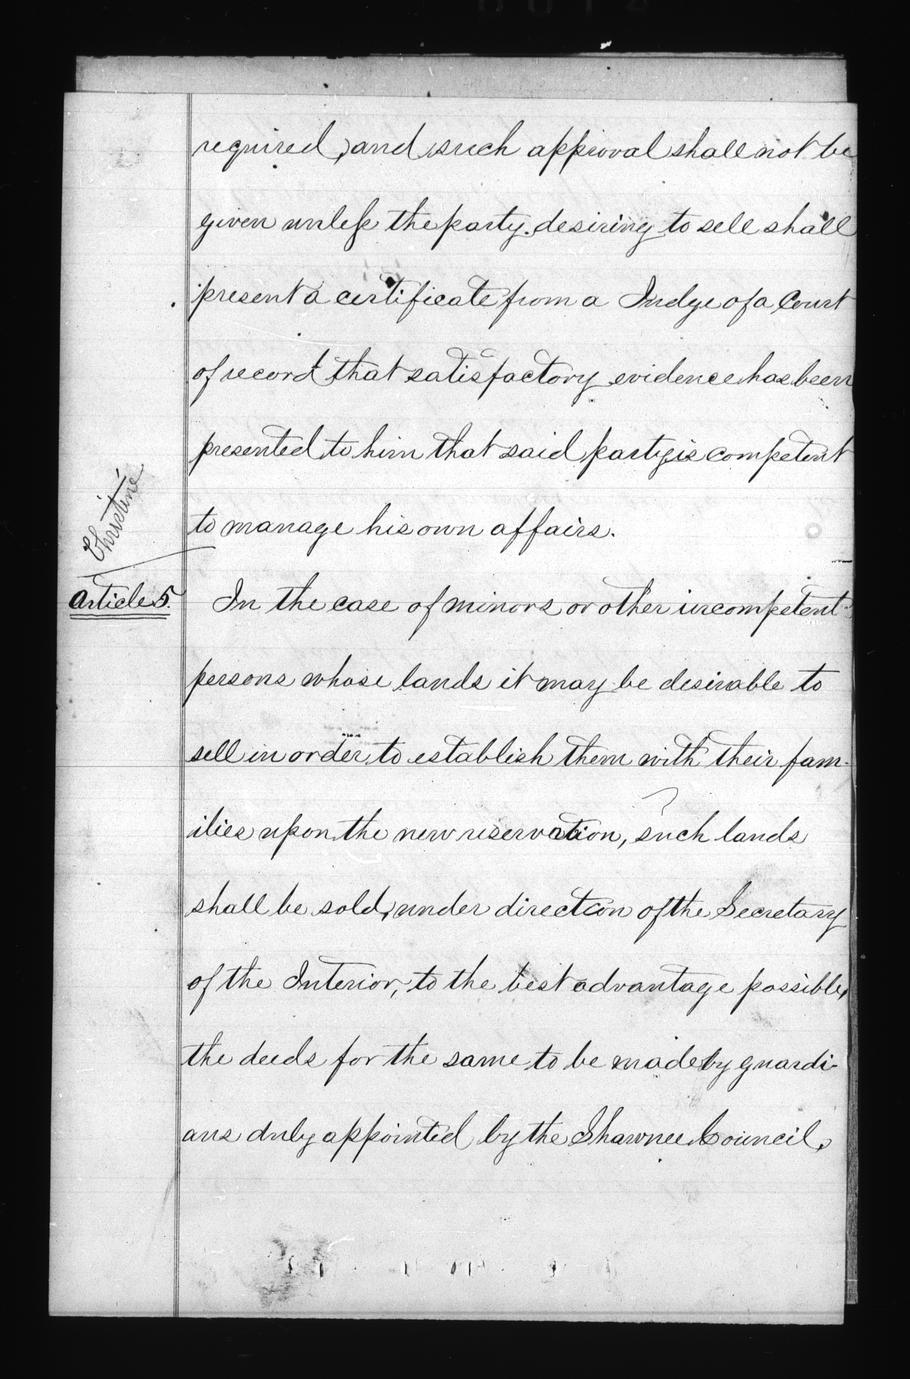 required, and such approval shall not be
given unless the party desiring to sell shall
present a certificate from a Judge of a Court
of record that satisfactory evidence has been
presented to him that said party is competent
to manage his own affairs.
Article 5.
In the case of minors or other incompetent
persons whose lands it may be desirable to
sell in order to establish them with their fam-
ilies upon the new reservation, such lands
shall be sold, under direction of the Secretary
of the Interior, to the best advantage possible,
the deeds for the same to be made by guardi-
ans duly appointed by the Shawnee Council,